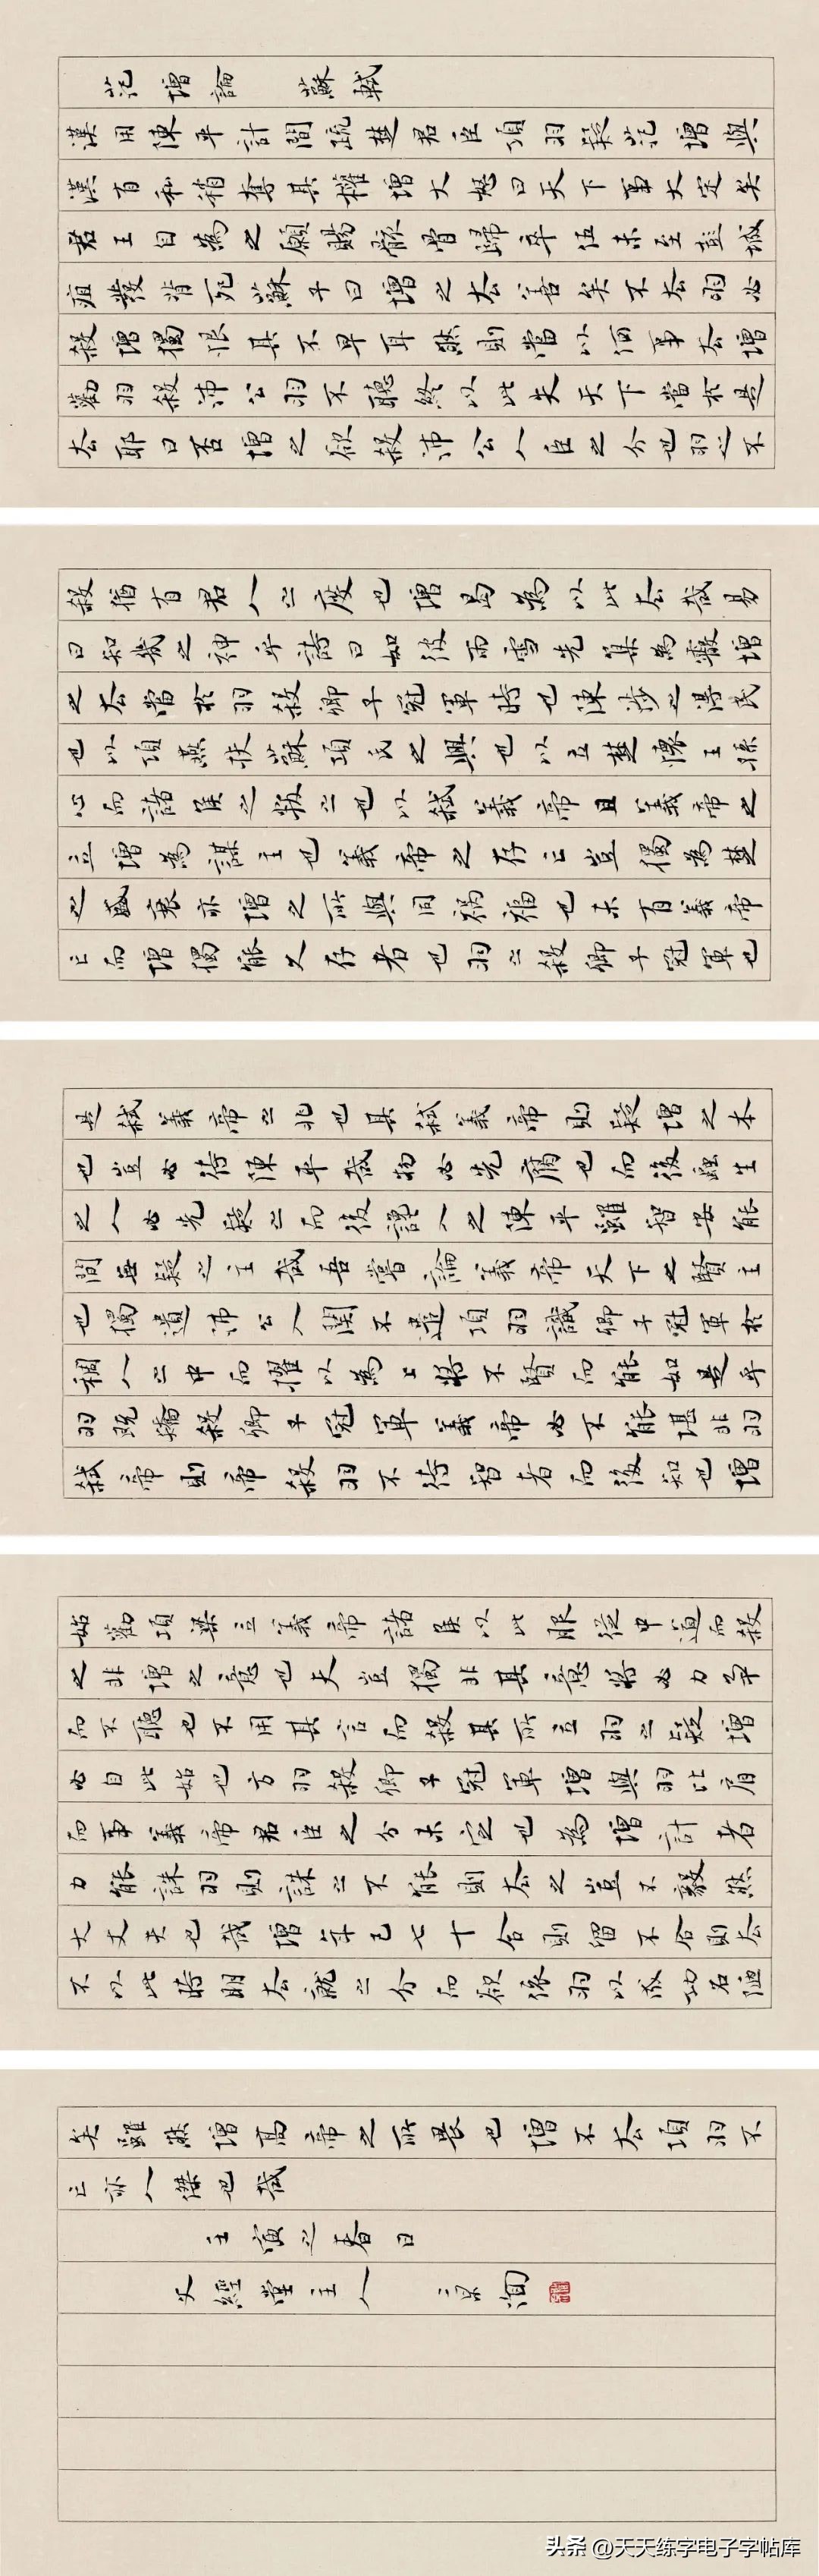 范增論 蘇軾
漢用陳平計間疏楚君臣項羽疑范增與
漢有私稍奪其權增大怒曰天下事大定矣
君王自為之願賜骸骨歸卒伍未至彭城
疽發背死蘇子曰增之去善矣不去羽必
殺增獨恨其不早耳然則當以何事去增
勸羽殺沛公羽不聽終以此失天下當於是
去耶曰否增之欲殺沛公人臣之分也羽之不
殺猶有君人之度也增曷為以此去哉易
曰知幾之神乎詩曰如彼雨雪先集為霰增
之去當於羽殺卿子冠軍時也陳涉之得民
也以項燕扶蘇項氏之興也以立楚懷王孫
心而諸侯之叛之也以弒義帝且義帝之
立增為謀主也義帝之存亡豈獨為楚
之盛衰亦增之所與同禍福也未有義帝
亡而增獨能久存者也羽之殺卿子冠軍也
是弒義帝之兆也其弒義帝則疑增之本
也豈必待陳平哉物必先腐也而後蟲生
之人必先疑之而後讒人之陳平雖智安能
間無疑之主哉吾嘗論義帝天下之賢主
也獨遣沛公入關不遣項羽識卿子冠軍於
稠人之中而擢以為上將不賢而能如是乎
羽既矯殺卿子冠軍義帝必不能堪非羽
弒帝則帝殺羽不待智者而後知也增
始勸項梁立義帝諸侯以此服從中道而殺
之非增之意也夫豈獨非其意將必力爭
而不聽也不用其言而殺其所立羽之疑增
必自此始也方羽殺卿子冠軍增與羽比肩
而事義帝君臣之分未定也為增計者
力能誅羽則誅之不能則去之豈不毅然
大丈夫也哉增年已七十合則留不合則去
不以此時明去就之分而欲依羽以成功名陋
矣雖然增高帝之所畏也增不去項羽不
亡亦人傑也哉
壬寅之春日
經堂主人
头条 @天天练字电子字帖库